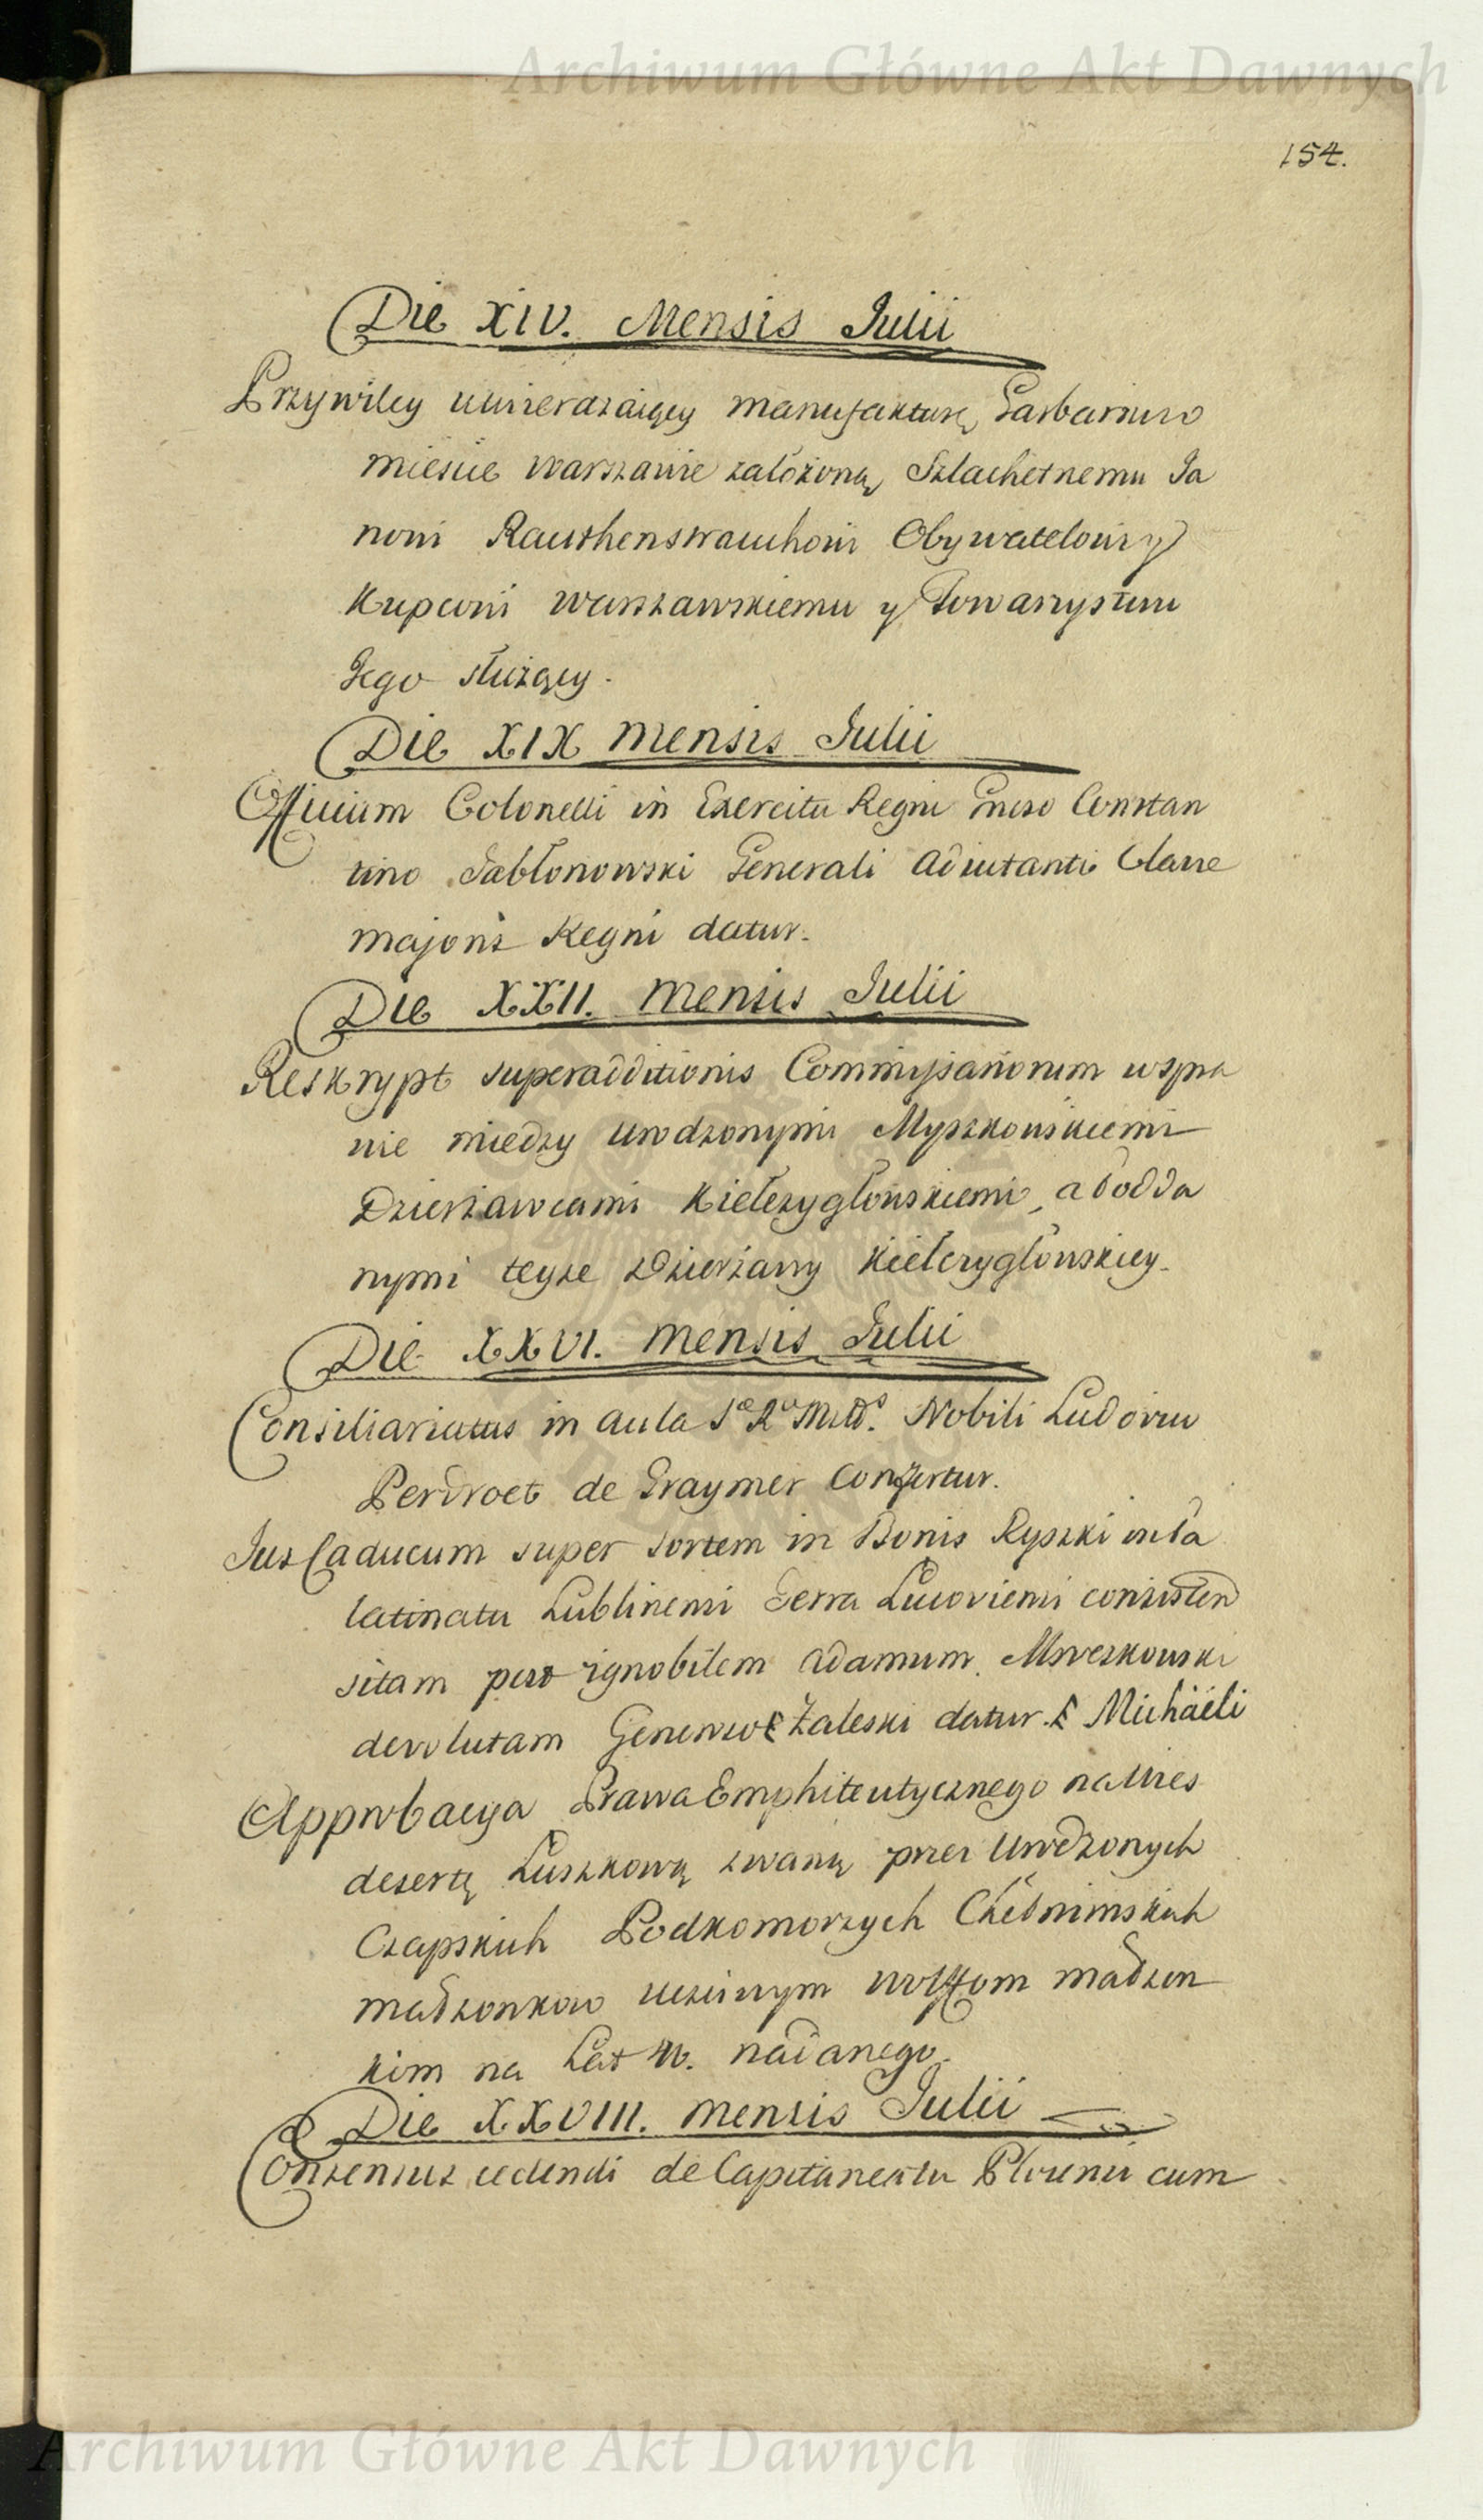 Archiwum Główne Akt Dawnych
154.
Die XIV. Mensis Julii
Przywiley utwierdzaiący manufakturę Garbarni w
mieście Warszawie założoną, Szlachetnemu Ja
nowi Obywatelowi y
Kupcowi Warszawskiemu y Towarzystwu
Jego służący.
Die XIX Mensis Julii
Officium Colonelli in Exercitu Regni Gneso Constan
tino Jabłonowski Generali Adiutanti Clavae
majoris Regni datur.
Die XXII. Mensis Julii
Reskrypt superadditionis Commissariorum wspra
wie miedzy Urodzonymi Myszkowskiemi
Dzierżawcami Kiełczygłowskiemi, a Podda
nymi teyże Dzierżawy Kiełczygłowskiey.
Die XXVI. Mensis Julii
Consiliariatus in aula Sae Rae Mttis. Nobili Ludovico
Perdroet de Graymer Confertur.
Jus Caducum super sortem in Bonis Ryszki in Pa
latinatu Lublinensi Terra Lucoviensi consisten
sitam post ignobilem Adamum
devolutam Generoso Zaleski datur. Michaeli
Approbacya Prawa Emphiteutycznego na Wieś
desertę Łuszkową zwaną przez Urodzonych
Czapskich Podkomorzych Chełminskich
małżonkow uczciwym małżon
kom na Lat 40. nadanego.
Die XXVIII. Mensis Julii
Consensus cedendi de Capitaneatu cum
Archiwum Główne Akt Dawnych